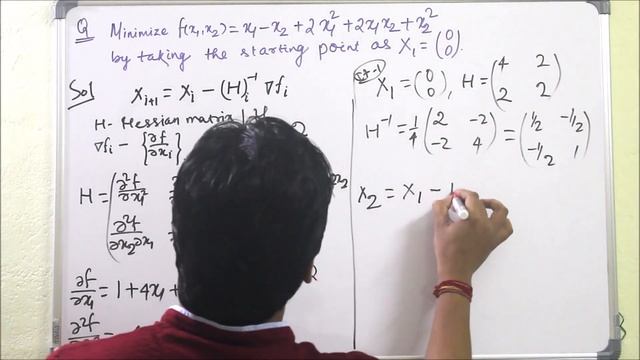 Q Minimize f(x₁,x₂)=x₁-x₂+2x₁²+2x₁x₂+x₂²
by taking the starting point as X₁=(0 0).
Sol Xᵢ₊₁ = Xᵢ - (H)ᵢ⁻¹ ∇fᵢ
H - Hessian matrix
∇fᵢ - {∂f/∂xᵢ}
H = (∂²f/∂x₁²
∂²f/∂x₂∂x₁
∂f/∂x₁ = 1+4x₁+
∂²f
St-1
X₁ = (0 0), H = (4 2 2 2)
H⁻¹ = 1/4 (2 -2 -2 4) = (1/2 -1/2 -1/2 1)
X₂ = X₁ -